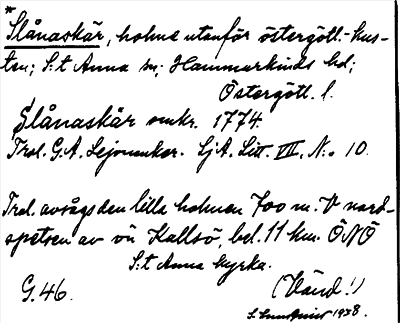 *
Slånaskär, holme utanför östergötl.-kus-
ten; S:t Anna sn; Hammarkinds hd;
Östergötl. l.
Slånaskär omkr. 1774.
Trol. G.A. Lejonanker. SjA. Litt. VII, N:o 10.
Trol. avsågs den lilla holmen 700 m. V nord-
spetsen av ön Kallsö, bel. 11 km. ÖNÖ
S:t Anna kyrka.
G.46. (Vänd!)
1938